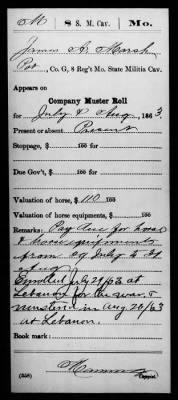 M | 8 S. M. Cav. | Mo.
James A. Marsh
Pvt, Co. G, 8 Reg't Mo. State Militia Cav.
Appears on
Company Muster Roll
for July & Aug, 1863.
Present or absent Present
Stoppage, $ 100 for
Due Gov't, $ 100 for
Valuation of horse, $ 110 100
Valuation of horse equipments, $ 100
Remarks: Pay due for horse
& horse equipments
from 29 July to 31
Aug
Enrolled July 29/63 at
Lebanon for the war. &
mustered in Aug 20/63
at Lebanon.
Book mark:
(358)
Copyist.